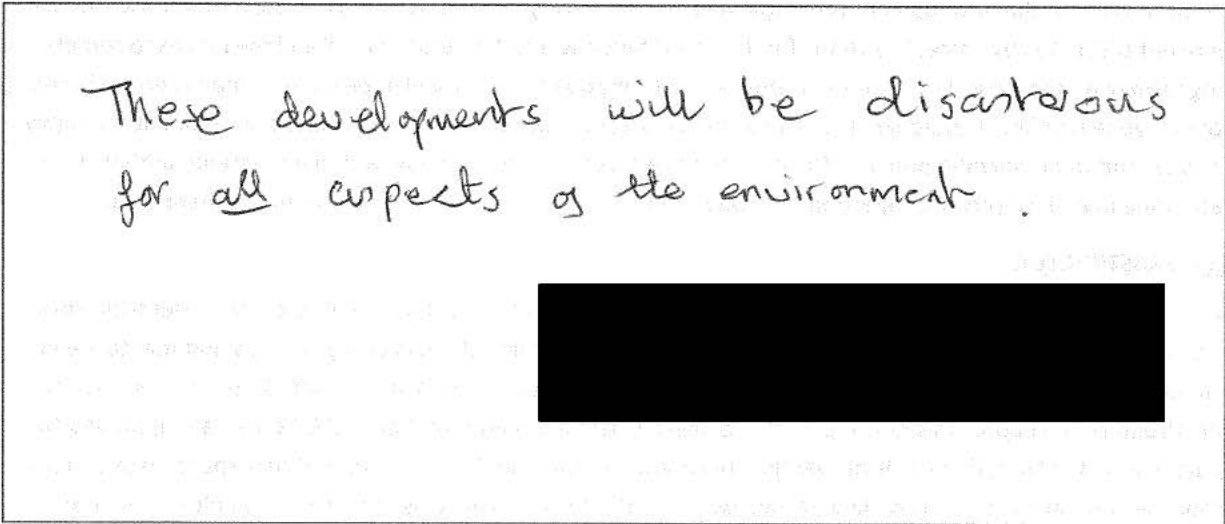 These developments will be disasterous
for all aspects of the environment.